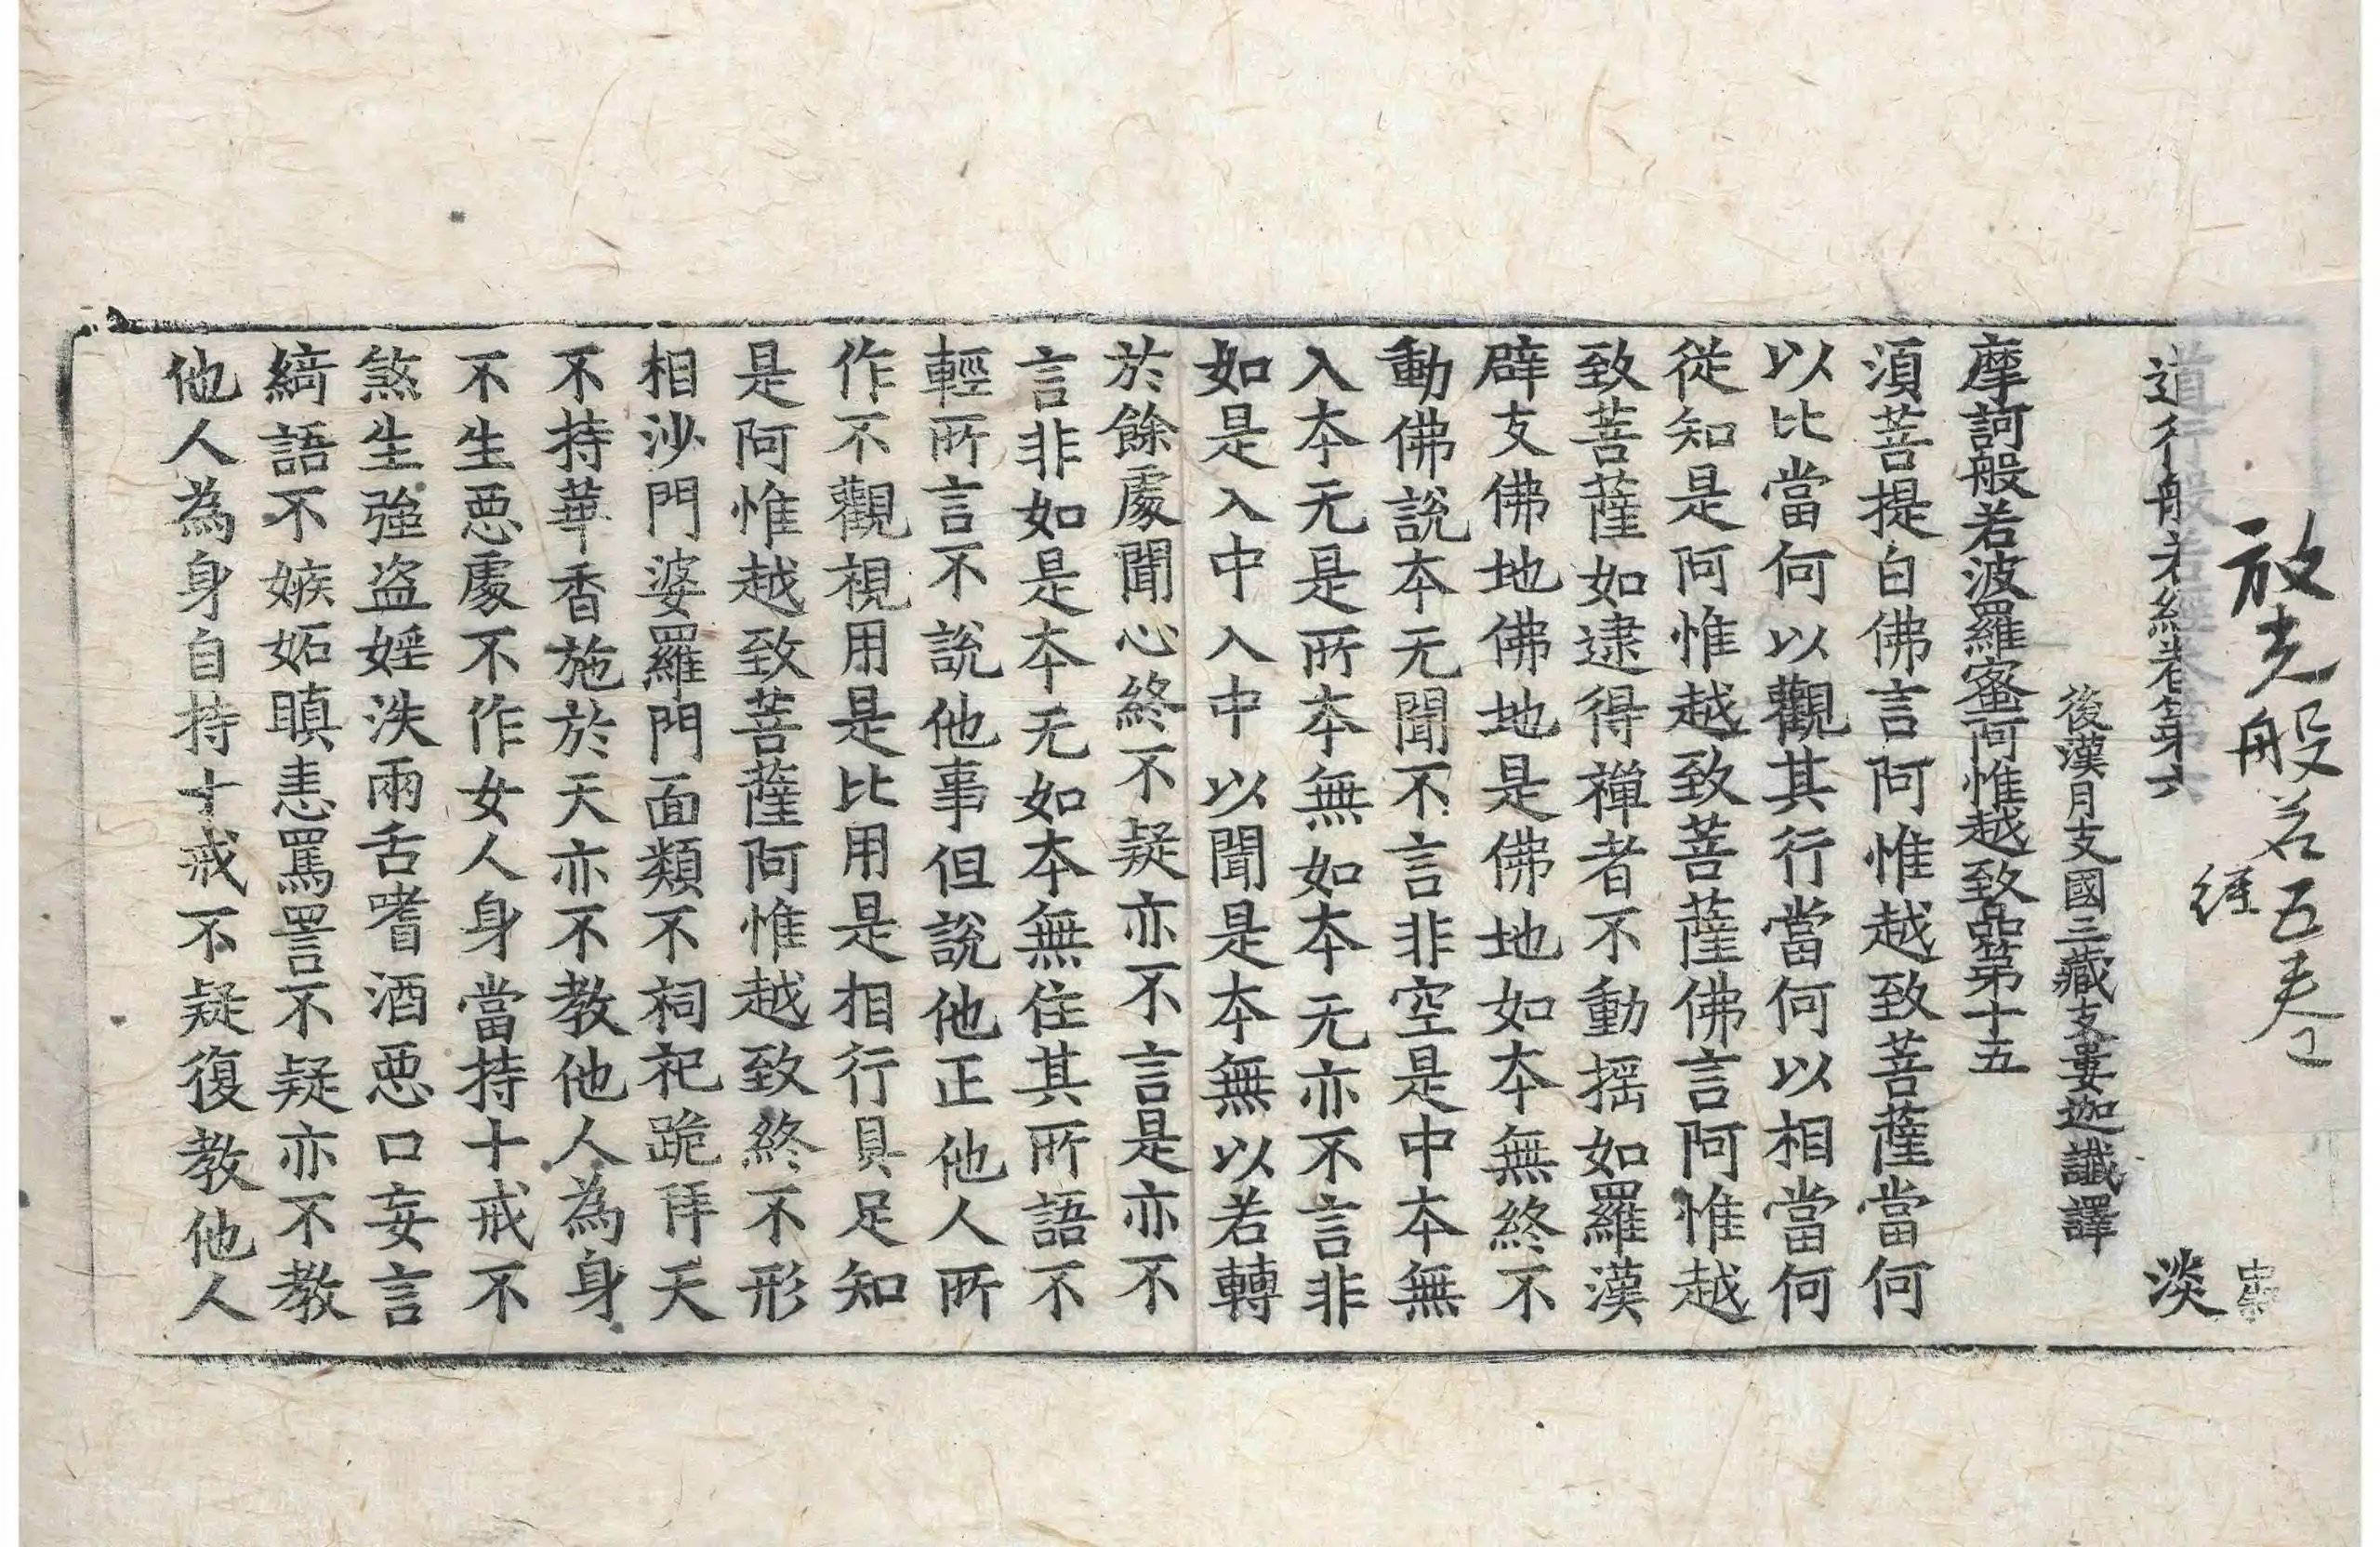 放光般若五卷
經
道行般若經卷第六 淡
後漢月支國三藏支婁迦讖譯
摩訶般若波羅蜜阿惟越致品第十五
須菩提白佛言阿惟越致菩薩當何
以比當何以觀其行當何以相當何
從知是阿惟越致菩薩佛言阿惟越
致菩薩如逮得禪者不動搖如羅漢
辟支佛地佛地是佛地如本無終不
動佛說本无聞不言非空是中本無
入本无是所本無如本无亦不言非
如是入中入中以聞是本無以若轉
於餘處聞心終不疑亦不言是亦不
言非如是本无如本無住其所語不
輕所言不說他事但說他正他人所
作不觀視用是比用是相行具足知
是阿惟越致菩薩阿惟越致終不形
相沙門婆羅門面類不祠祀跪拜天
不持華香施於天亦不教他人為身
不生惡處不作女人身當持十戒不
煞生強盜婬泆兩舌嗜酒惡口妄言
綺語不嫉妬瞋恚罵詈不疑亦不教
他人為身自持十戒不疑復教他人